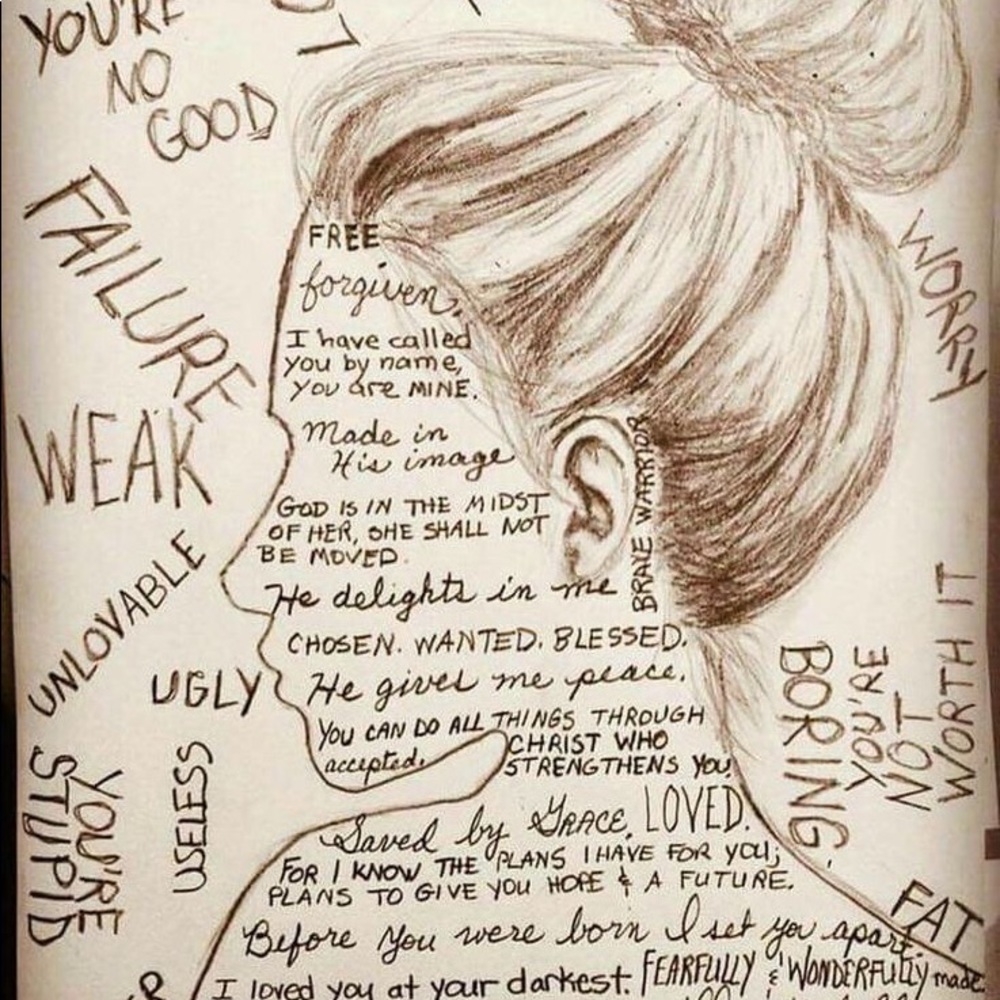 YOU'RE
NO
GOOD
FAILURE
WEAK
UNLOVABLE
UGLY
USELESS
YOU'RE
STUPID
FREE
forgiven.
I have called
you by name,
you are MINE.
Made in
His image
GOD IS IN THE MIDST
OF HER, SHE SHALL NOT
BE MOVED.
He delights in me
CHOSEN. WANTED. BLESSED.
He gives me peace.
YOU CAN DO ALL THINGS THROUGH
CHRIST WHO
STRENGTHENS YOU
accepted.
BRAVE WARRIOR
Saved by GRACE. LOVED.
FOR I KNOW THE PLANS I HAVE FOR YOU;
PLANS TO GIVE YOU HOPE & A FUTURE.
Before you were born I set you apart
I loved you at your darkest. FEARFULLY & WONDERFULLY made.
WORRY
BORING.
YOU'RE
NOT
WORTH IT
FAT